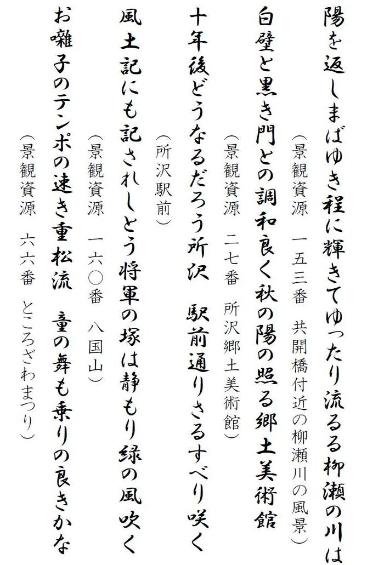 陽を返しまばゆき程に輝きてゆったり流るる柳瀬の川は
（景観資源　一五三番　共開橋付近の柳瀬川の風景）
白壁と黒き門との調和良く秋の陽の照る郷土美術館
（景観資源　二七番　所沢郷土美術館）
十年後どうなるだろう所沢　駅前通りさるすべり咲く
（所沢駅前）
風土記にも記されしとう将軍の塚は静もり緑の風吹く
（景観資源　一六〇番　八国山）
お囃子のテンポの速き重松流　童の舞も乗りの良きかな
（景観資源　六六番　ところざわまつり）